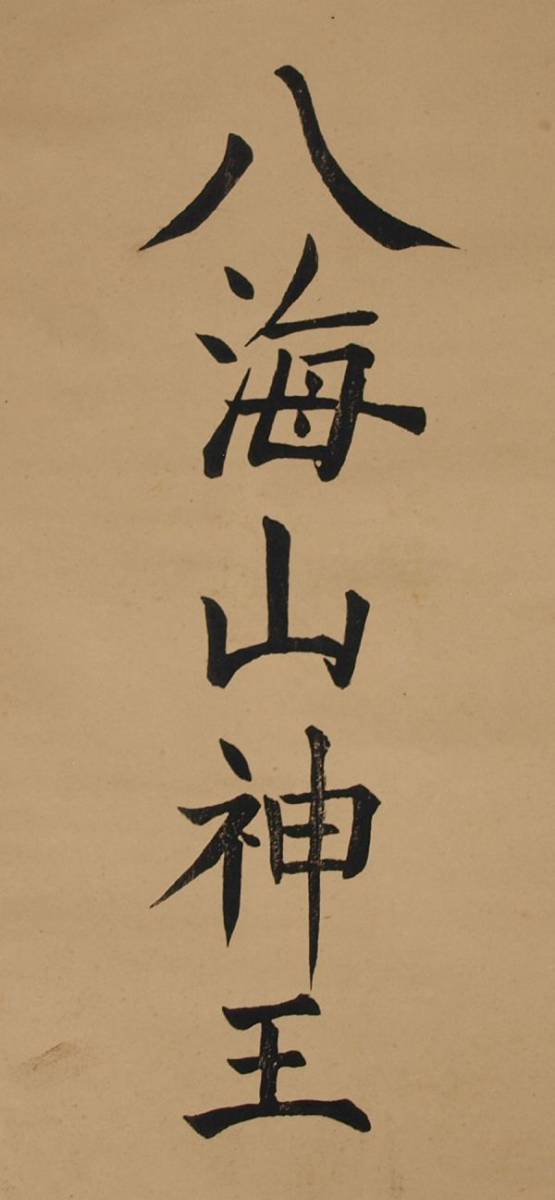 八海山神王